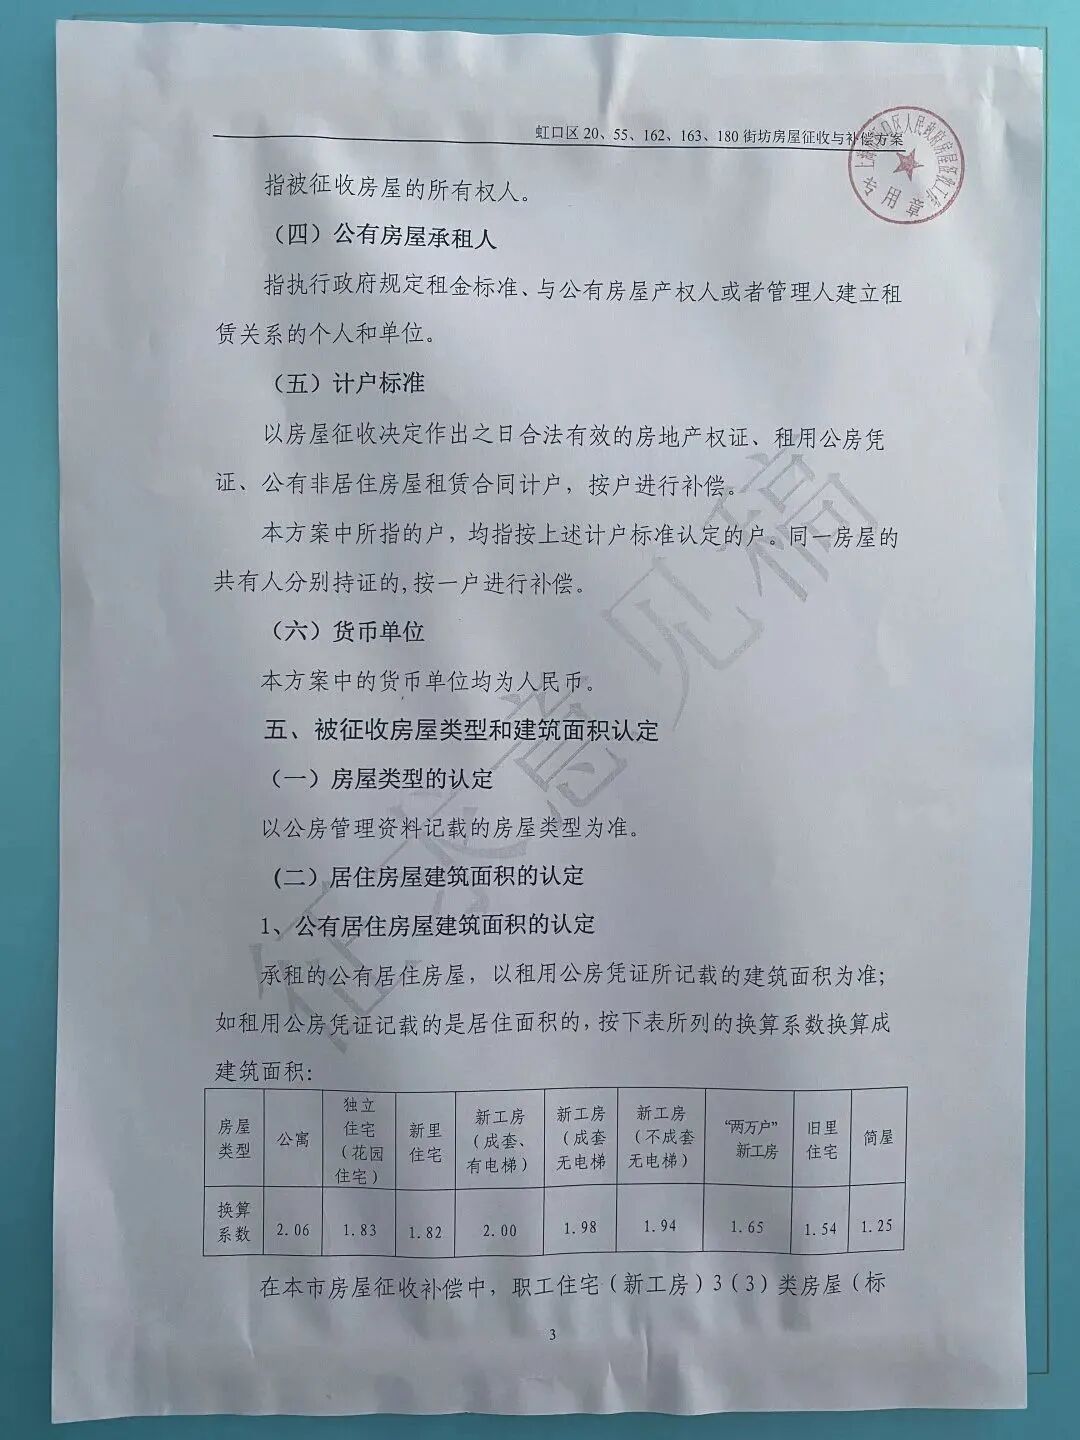 虹口区 20、55、162、163、180 街坊房屋征收与补偿方案
专用章
指被征收房屋的所有权人。
（四）公有房屋承租人
指执行政府规定租金标准、与公有房屋产权人或者管理人建立租
赁关系的个人和单位。
（五）计户标准
以房屋征收决定作出之日合法有效的房地产权证、租用公房凭
证、公有非居住房屋租赁合同计户，按户进行补偿。
本方案中所指的户，均指按上述计户标准认定的户。同一房屋的
共有人分别持证的,按一户进行补偿。
（六）货币单位
本方案中的货币单位均为人民币。
五、被征收房屋类型和建筑面积认定
（一）房屋类型的认定
以公房管理资料记载的房屋类型为准。
(二）居住房屋建筑面积的认定
1、公有居住房屋建筑面积的认定
承租的公有居住房屋，以租用公房凭证所记载的建筑面积为准；
如租用公房凭证记载的是居住面积的,按下表所列的换算系数换算成
建筑面积：
房屋
类型
公寓
独立
住宅
（花园
住宅）
新里
住宅
新工房
（成套、
有电梯）
新工房
（成套
无电梯
新工房
（不成套
无电梯）
“两万户”
新工房
旧里
住宅
简屋
换算
系数
2.06
1.83
1.82
2.00
1.98
1.94
1.65
1.54
1.25
在本市房屋征收补偿中，职工住宅（新工房）3（3）类房屋（标
3
征求意见稿